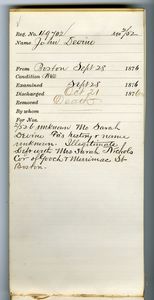 Reg. No. 119702/ No 2/52
Name John Devine
From Boston Sept 28 1876
Condition
Examined Sept 28 1876
Discharged Oct 21 1876
Removed Death
By whom
For Nos.
2/526 unknown Mo Sarah
Devine Pa's history & name
unknown. Illegitimate
Left with Mrs Sarah Nichols
Cor of Gooch & Merrimac St
Boston.